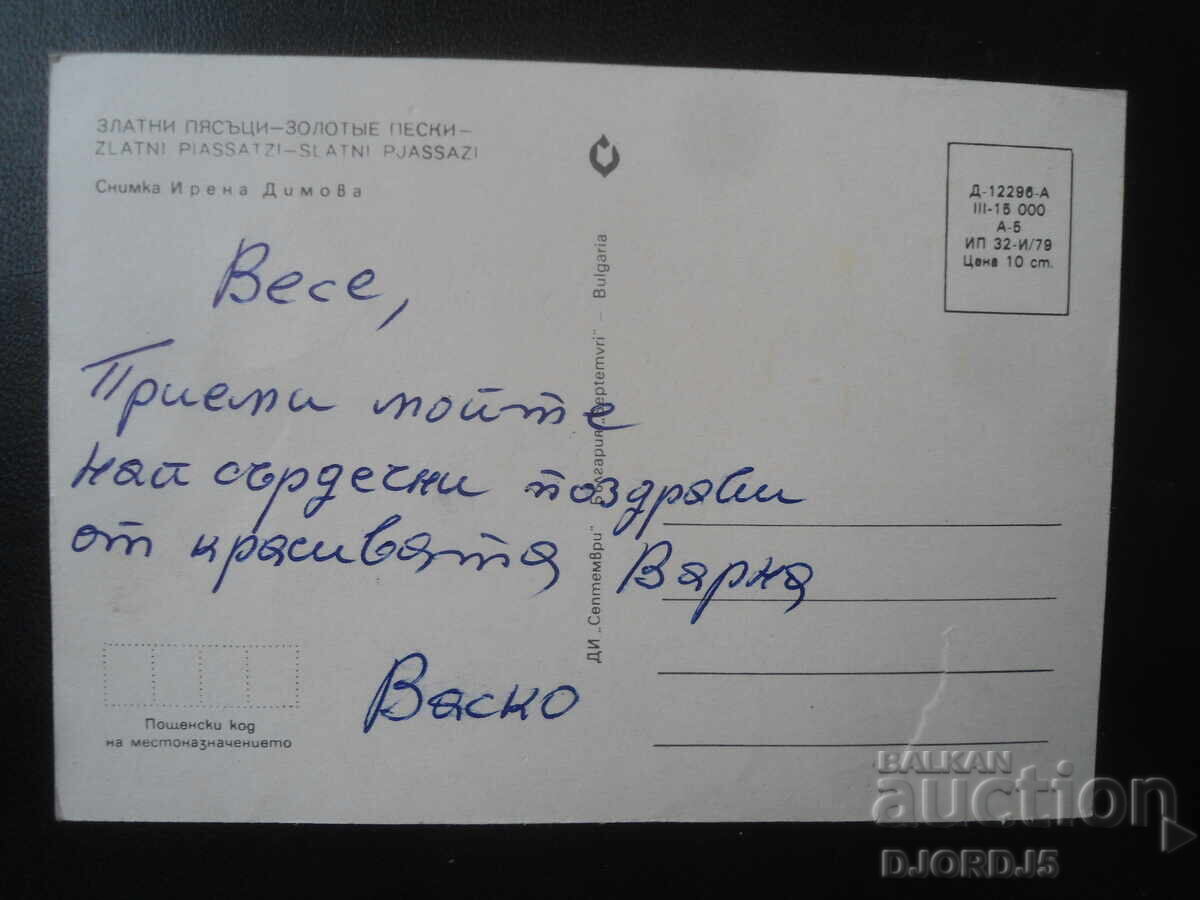 ЗЛАТНИ ПЯСЪЦИ–ЗОЛОТЫЕ ПЕСКИ–
ZLATNI PIASSATZI–SLATNI PJASSAZI
Снимка Ирена Димова
Весе,
Приеми мойте
най сърдечни поздрави
от красивата Варна
Васко
Пощенски код
на местоназначението
ДИ „Септември" България „Septemvri" – Bulgaria
Д-12296-А
III-15 000
А-5
ИП 32-И/79
Цена 10 ст.
BALKAN
auction
DJORDJ5